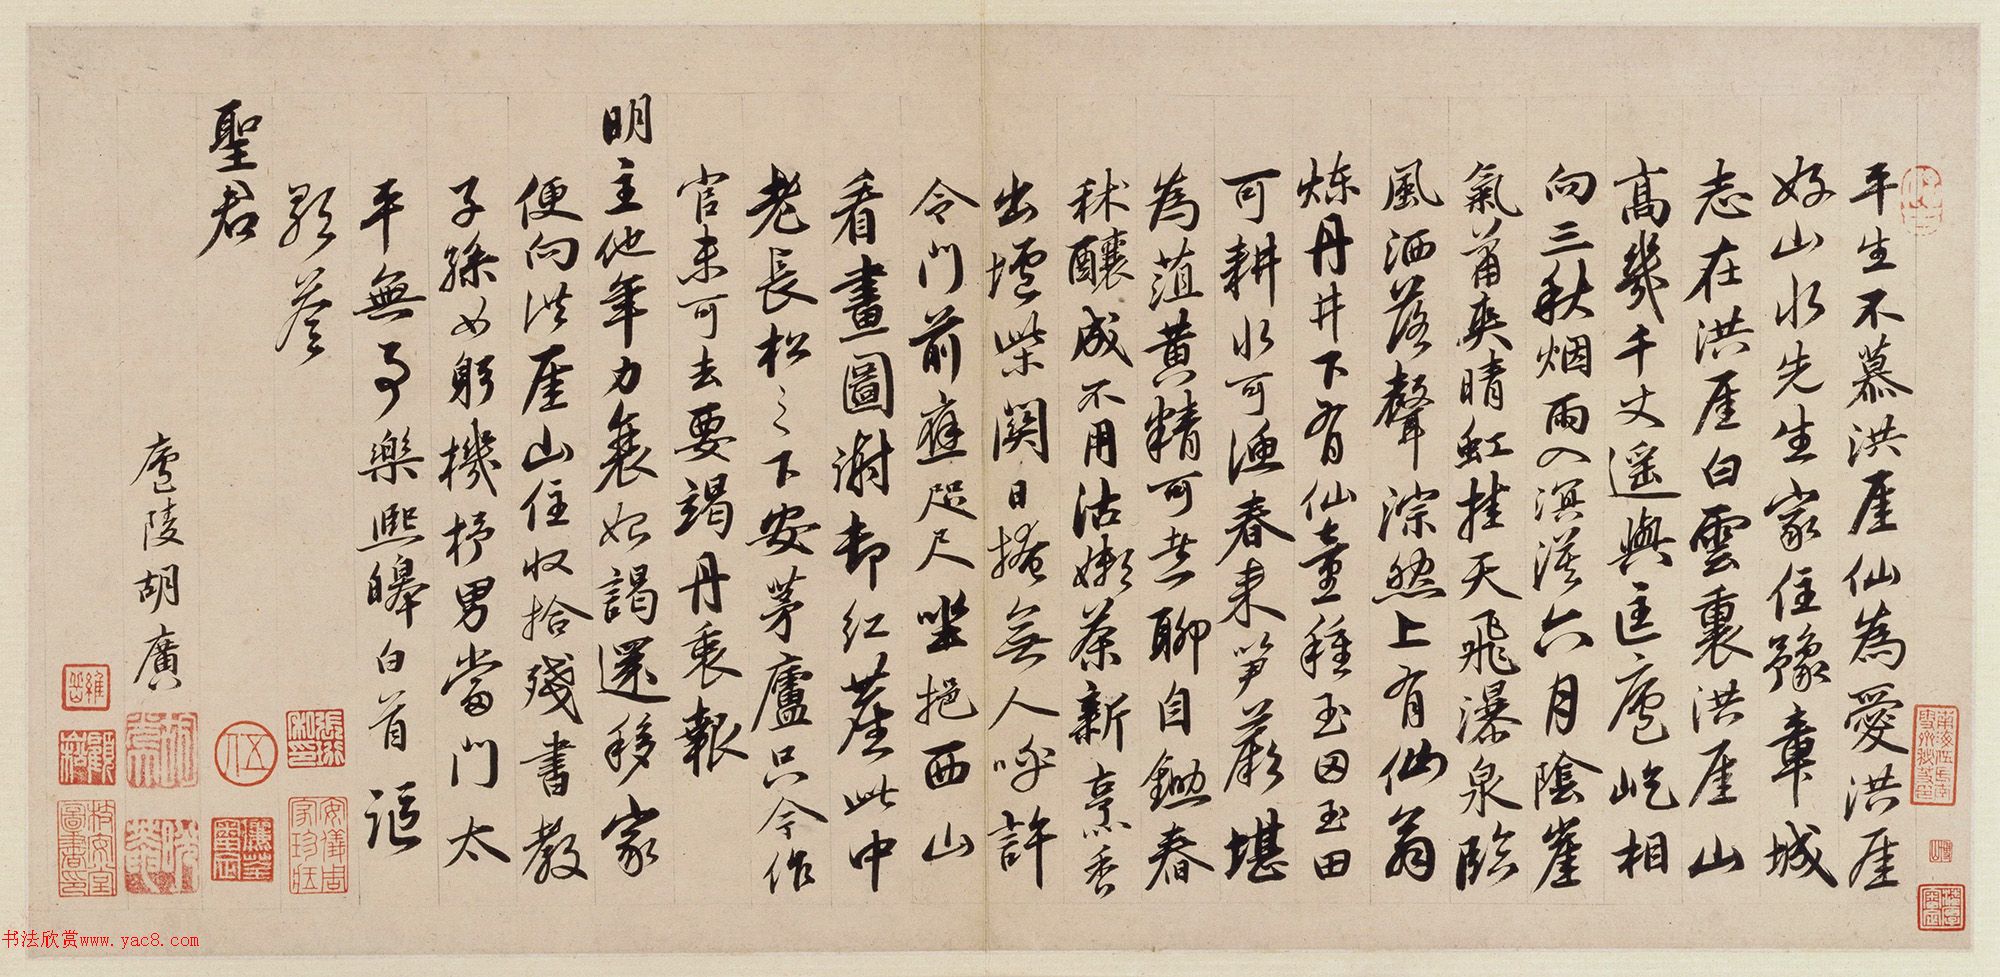 平生不慕洪厓仙為愛洪厓
好山水先生家住豫章城
志在洪厓白雲裏洪厓山
高幾千丈遥與匡廬屹相
向三秋烟雨入溟漠六月陰崖
氣蕭爽晴虹挂天飛瀑泉臨
風洒落聲淙然上有仙翁
煉丹井下有仙童種玉田玉田
可耕水可漁春来笋蕨堪
為葅黄精可煑聊自鋤春
秫釀成不用沽嫩茶新烹香
出爐柴關日掩無人呼許
令門前庭咫尺坐挹西山
看畫圖謝却紅塵此中
老長松之下安茅廬只今作
官未可去要竭丹衷報
明主他年力衰始謁還移家
便向洪厓山住收拾殘書教
子孫女躬機杼男當門太
平無事樂熙皞白首謳
歌荅
聖君
廬陵胡廣
張珩私印
安儀周家珍藏
書法欣赏www.yac8.com